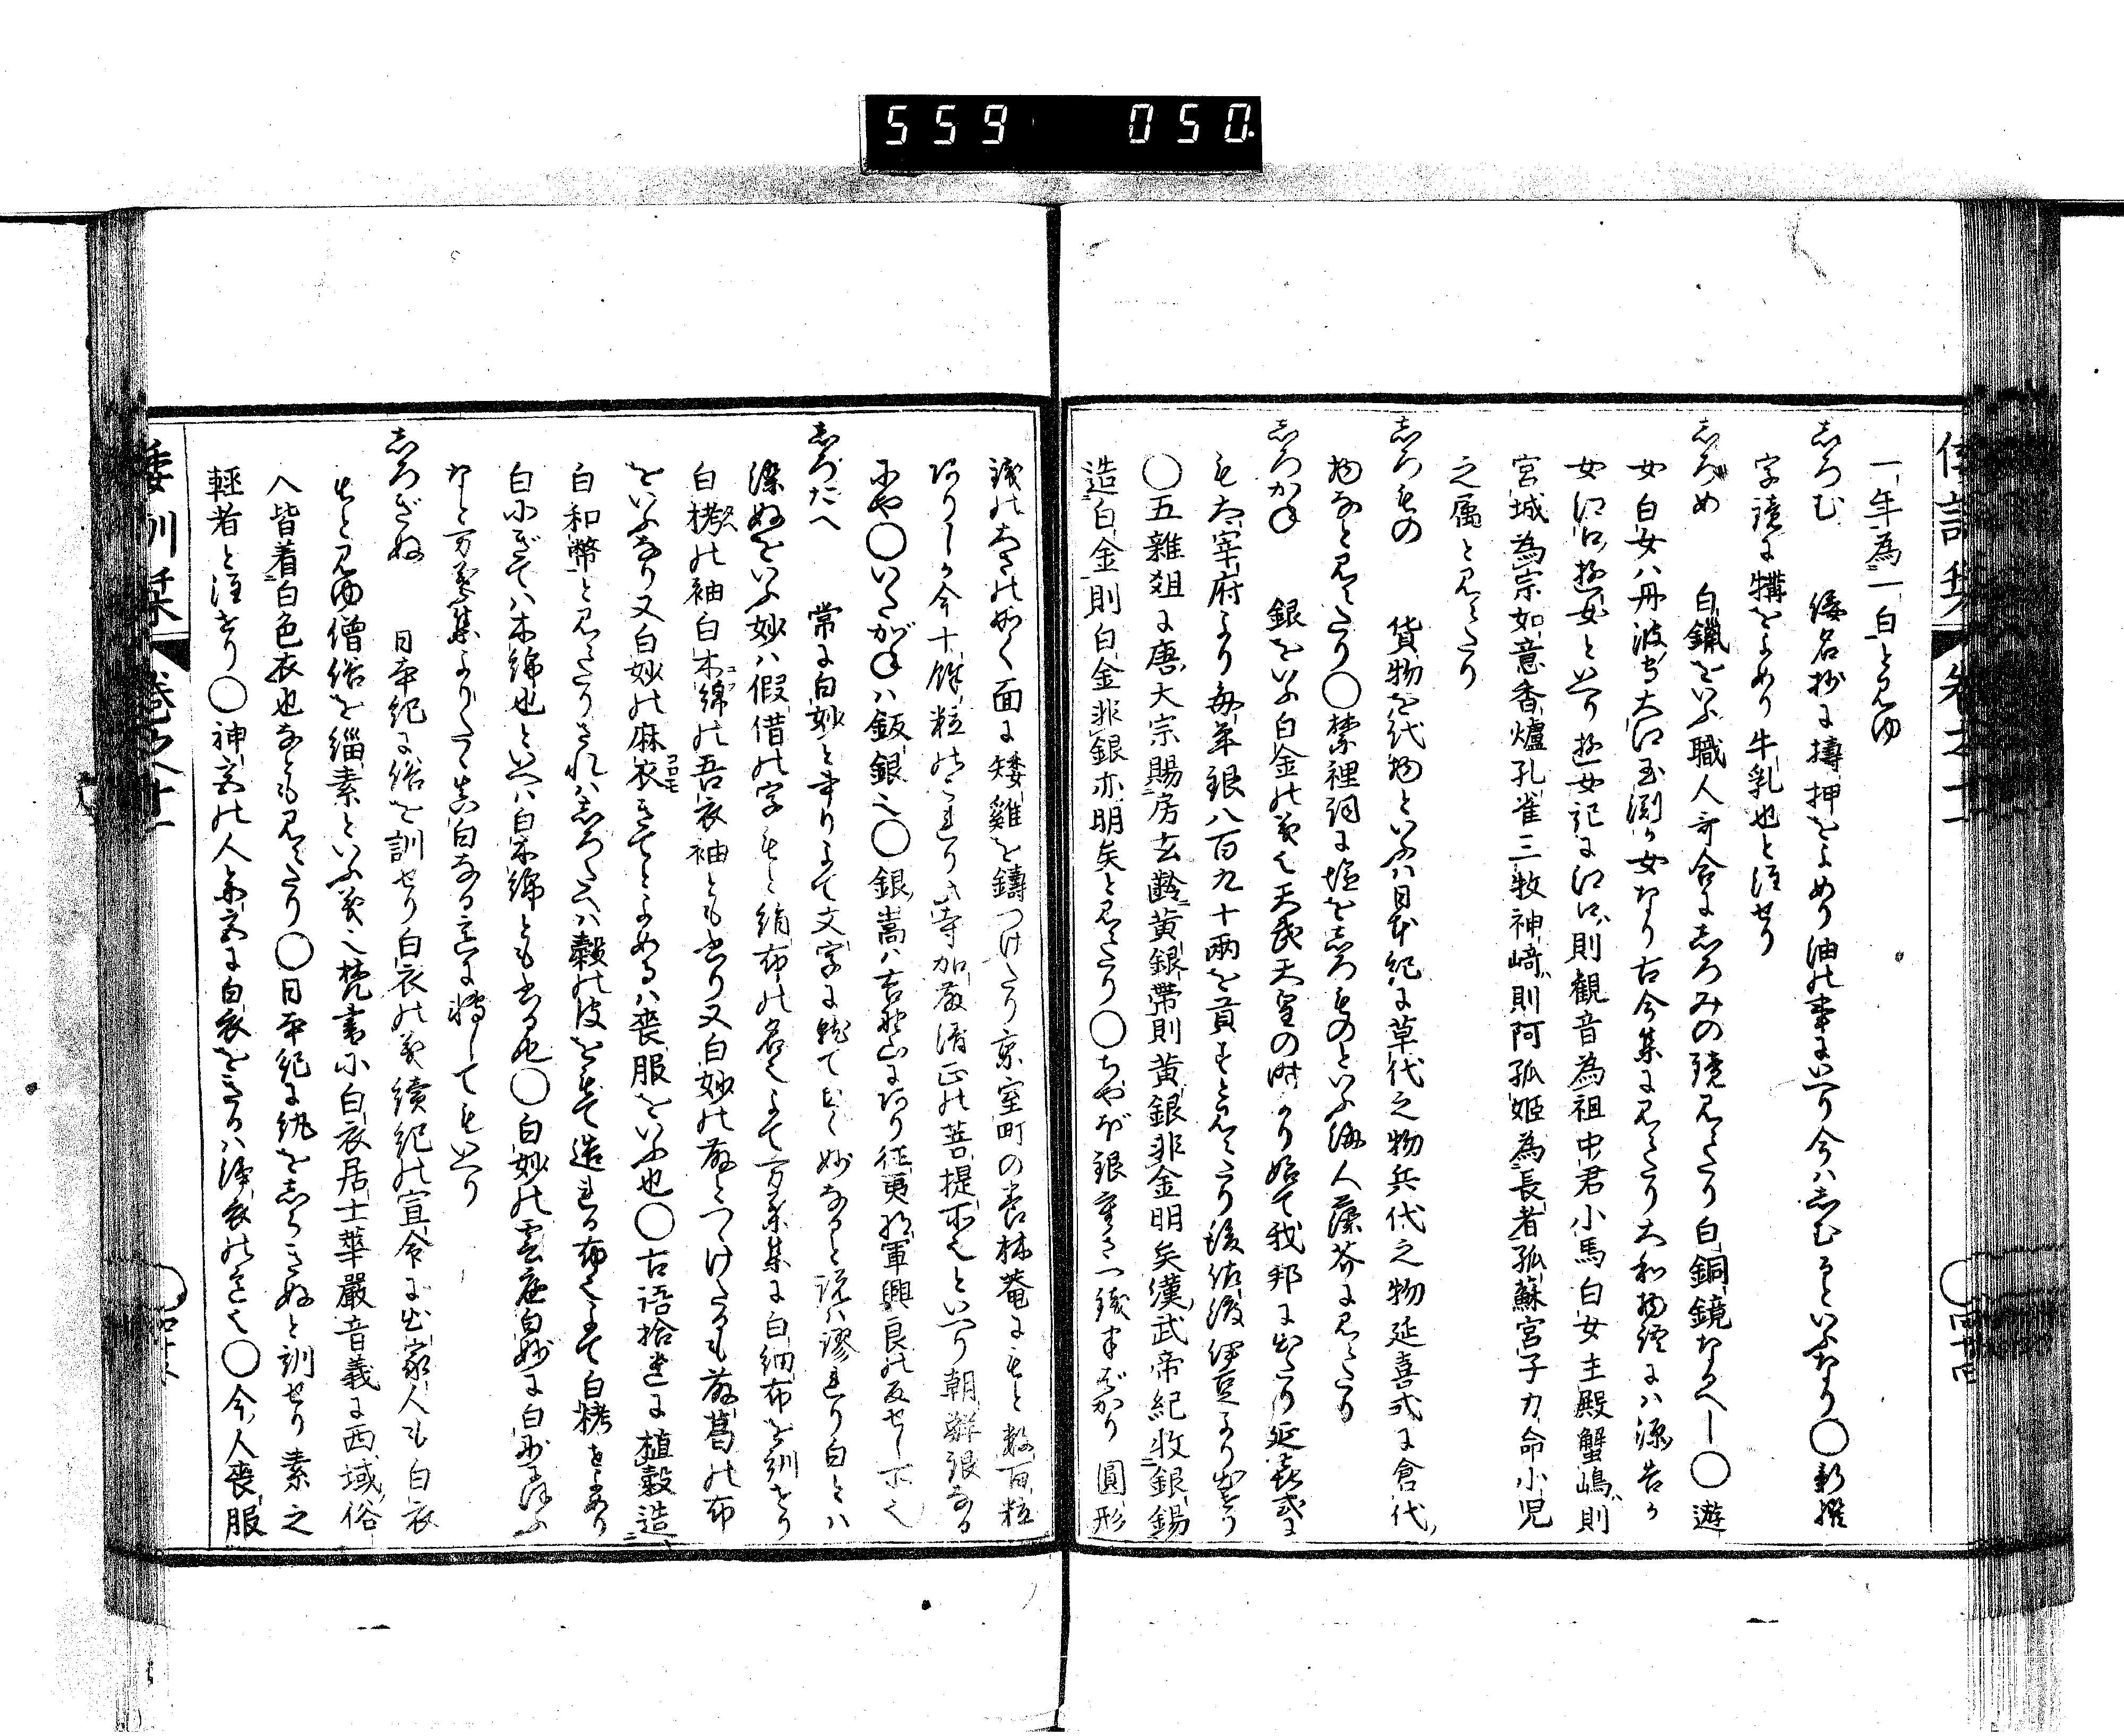 559 050.
一年為一白と見ゆ
志ろむ 倭名抄に擣押をよめり油の事にいへり今ハ志むるといふなり〇新撰
字鏡に𤛗をよめり牛乳也と注せり
志ろめ 白鑞をいふ職人歌合に志ろみの鏡見えたり白銅鏡なるへし〇遊
女白女ハ丹波守大江玉渕か女なり古今集に見えたり大和物語にハ源告か
女江口遊女といへり遊女記に江口則観音為祖中君小馬白女主殿蟹嶋則
宮城為宗如意香爐孔雀三牧神﨑則阿孤姫為長者孤蘇宮子力命小児
之属と見えたり
志ろもの 貨物を代物といふハ日本紀に草代之物兵代之物延喜式に倉代
物なと見えたり〇禁裡詞に塩を志ろものといふ海人藻芥に見えたり
志ろかね 銀をいふ白金の義也天武天皇の時より始て我邦に出たり延喜式に
も太宰府より毎年銀八百九十両を貢すと見えたり後佐渡伊豆より出せり
〇五雑俎に唐大宗賜房玄齢黄銀帯則黄銀非金明矣漢武帝紀收銀錫
造白金則白金非銀亦明矣と見えたり〇ちやぼ銀重さ一銭半ばかり圓形
銭の大さの如く面に矮雞を鑄つけたり京室町の養林菴にもと数百粒
ありしか今十餘粒のこれり此寺加藤清正の菩提所也といへり朝鮮銀なる
にや〇いたがねハ鈑銀也〇銀嵩ハ吉野山にあり征夷将軍興良の反せし所也
志ろたへ 常に白妙と書りよて文字に就て白く妙なりと説ハ謬れり白とハ
染ぬをいふ妙ハ假借の字もと絹布の名也よて万葉集に白細布を訓せり
白栲の袖白木綿の吾衣袖とも書り又白妙の藤とつゝけたるも藤葛の布
をいふなり又白妙の麻衣きてとよめるハ喪服をいふ也〇古語拾遺に植穀造
白和幣と見えたりされハ志ろたへハ穀の皮をもて造れる布也よて白栲とよめり
白にぎてハ木綿也といへハ白木綿とも書る也〇白妙の雲庭白妙に白砂よそふ
なと万葉集よりこえ真白なる意に轉してもいへり
志ろぎぬ 日本紀に俗を訓せり白衣の義続紀の宣命に出家人も白衣
もと見ゆ僧俗を緇素といふ義也梵書に白衣居士華嚴音義に西域俗
人皆着白色衣也なとも見えたり〇日本紀に紈を志らきぬと訓せり素之
輕者と注せり〇神家の人常家に白衣をきるハ浄衣の意也〇今人喪服
倭訓栞 巻之廿一